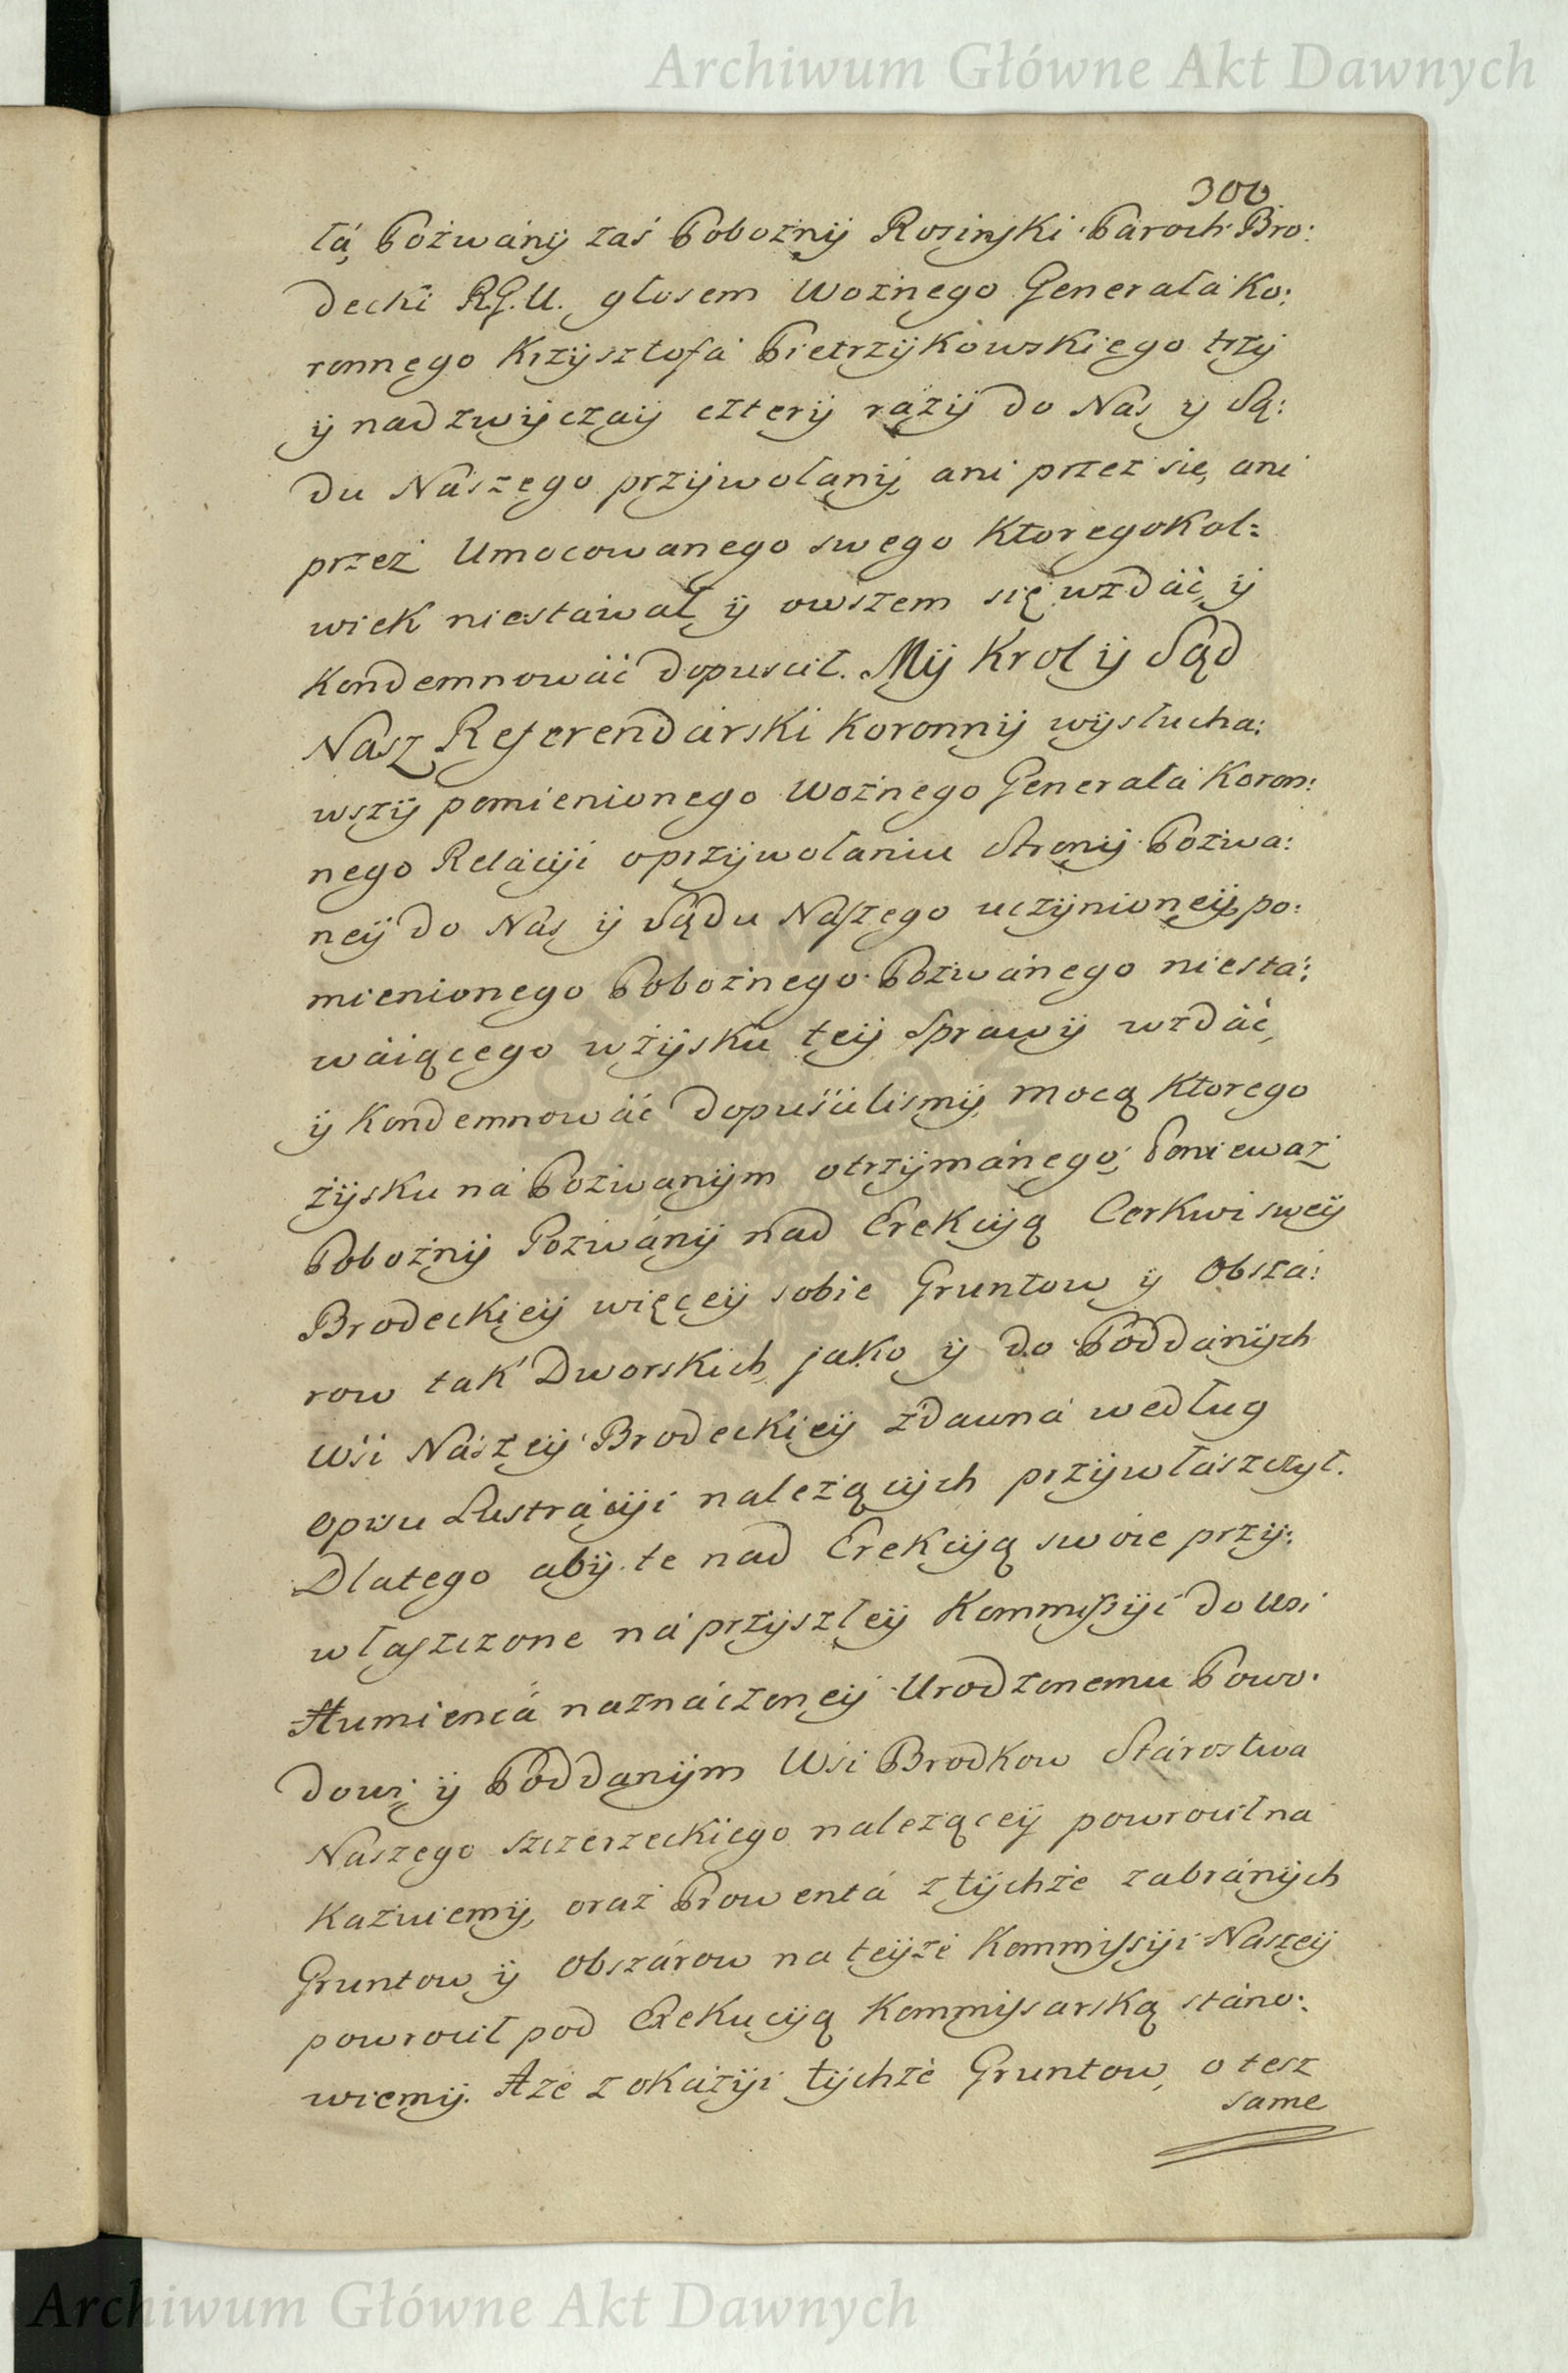 Archiwum Główne Akt Dawnych
300
łá, Pozwány zaś Pobożny Rosiński Paroch Bro:
decki R.G.U. głosem Woźnego Generała Ko:
ronnego Krzysztofá Pietrzykowskiego trzy
y nadzwyczay cztery rázy do Nas y Są:
du Naszego przywołany, ani przez się, ani
przez Umocowanego swego ktoregokol:
wiek niestawał, y owszem się wzdáć, y
kondemnowáć dopuscił. My Krol y Sąd
Nasz Referendarski Koronny wysłucha:
wszy pomienionego Woźnego Generała Koron:
nego Relácyi o przywołaniu Strony Pozwa:
ney do Nas y Sądu Naszego uczynioney, po:
mienionego Pobożnego Pozwánego niesta:
wáiącego w zysku tey Sprawy wzdáć,
y kondemnowáć dopuścilismy, mocą ktorego
zysku ná Pozwanym otrzymánego; Ponieważ
Pobożny Pozwány nad Erekcyą Cerkwi swey
Brodeckiey więcey sobie Gruntow y Obszá:
row tak Dworskich, jako y do Poddánych
Wśi Nászey Brodeckiey zdawná według
Opisu Lustrácyi należących przywłászczył.
Dlatego aby te nad Erekcyą swoie przy:
własczone ná przyszłey Kommissyi do Wsi
Humiencá naznáczoney Urodzonemu Powo:
dowi y Poddanym Wśi Brodkow Stárostwa
Naszego Szczerzeckiego należącey powrocił na
kazuiemy, oraz Prowentá z tychże zabránych
Gruntow y Obszárow na teyże Kommissyi Naszey
powrocił pod Exekucyą Kommissarską stáno:
wiemy. A że z okázyi tychże Gruntow, o tesz
same
Archiwum Główne Akt Dawnych